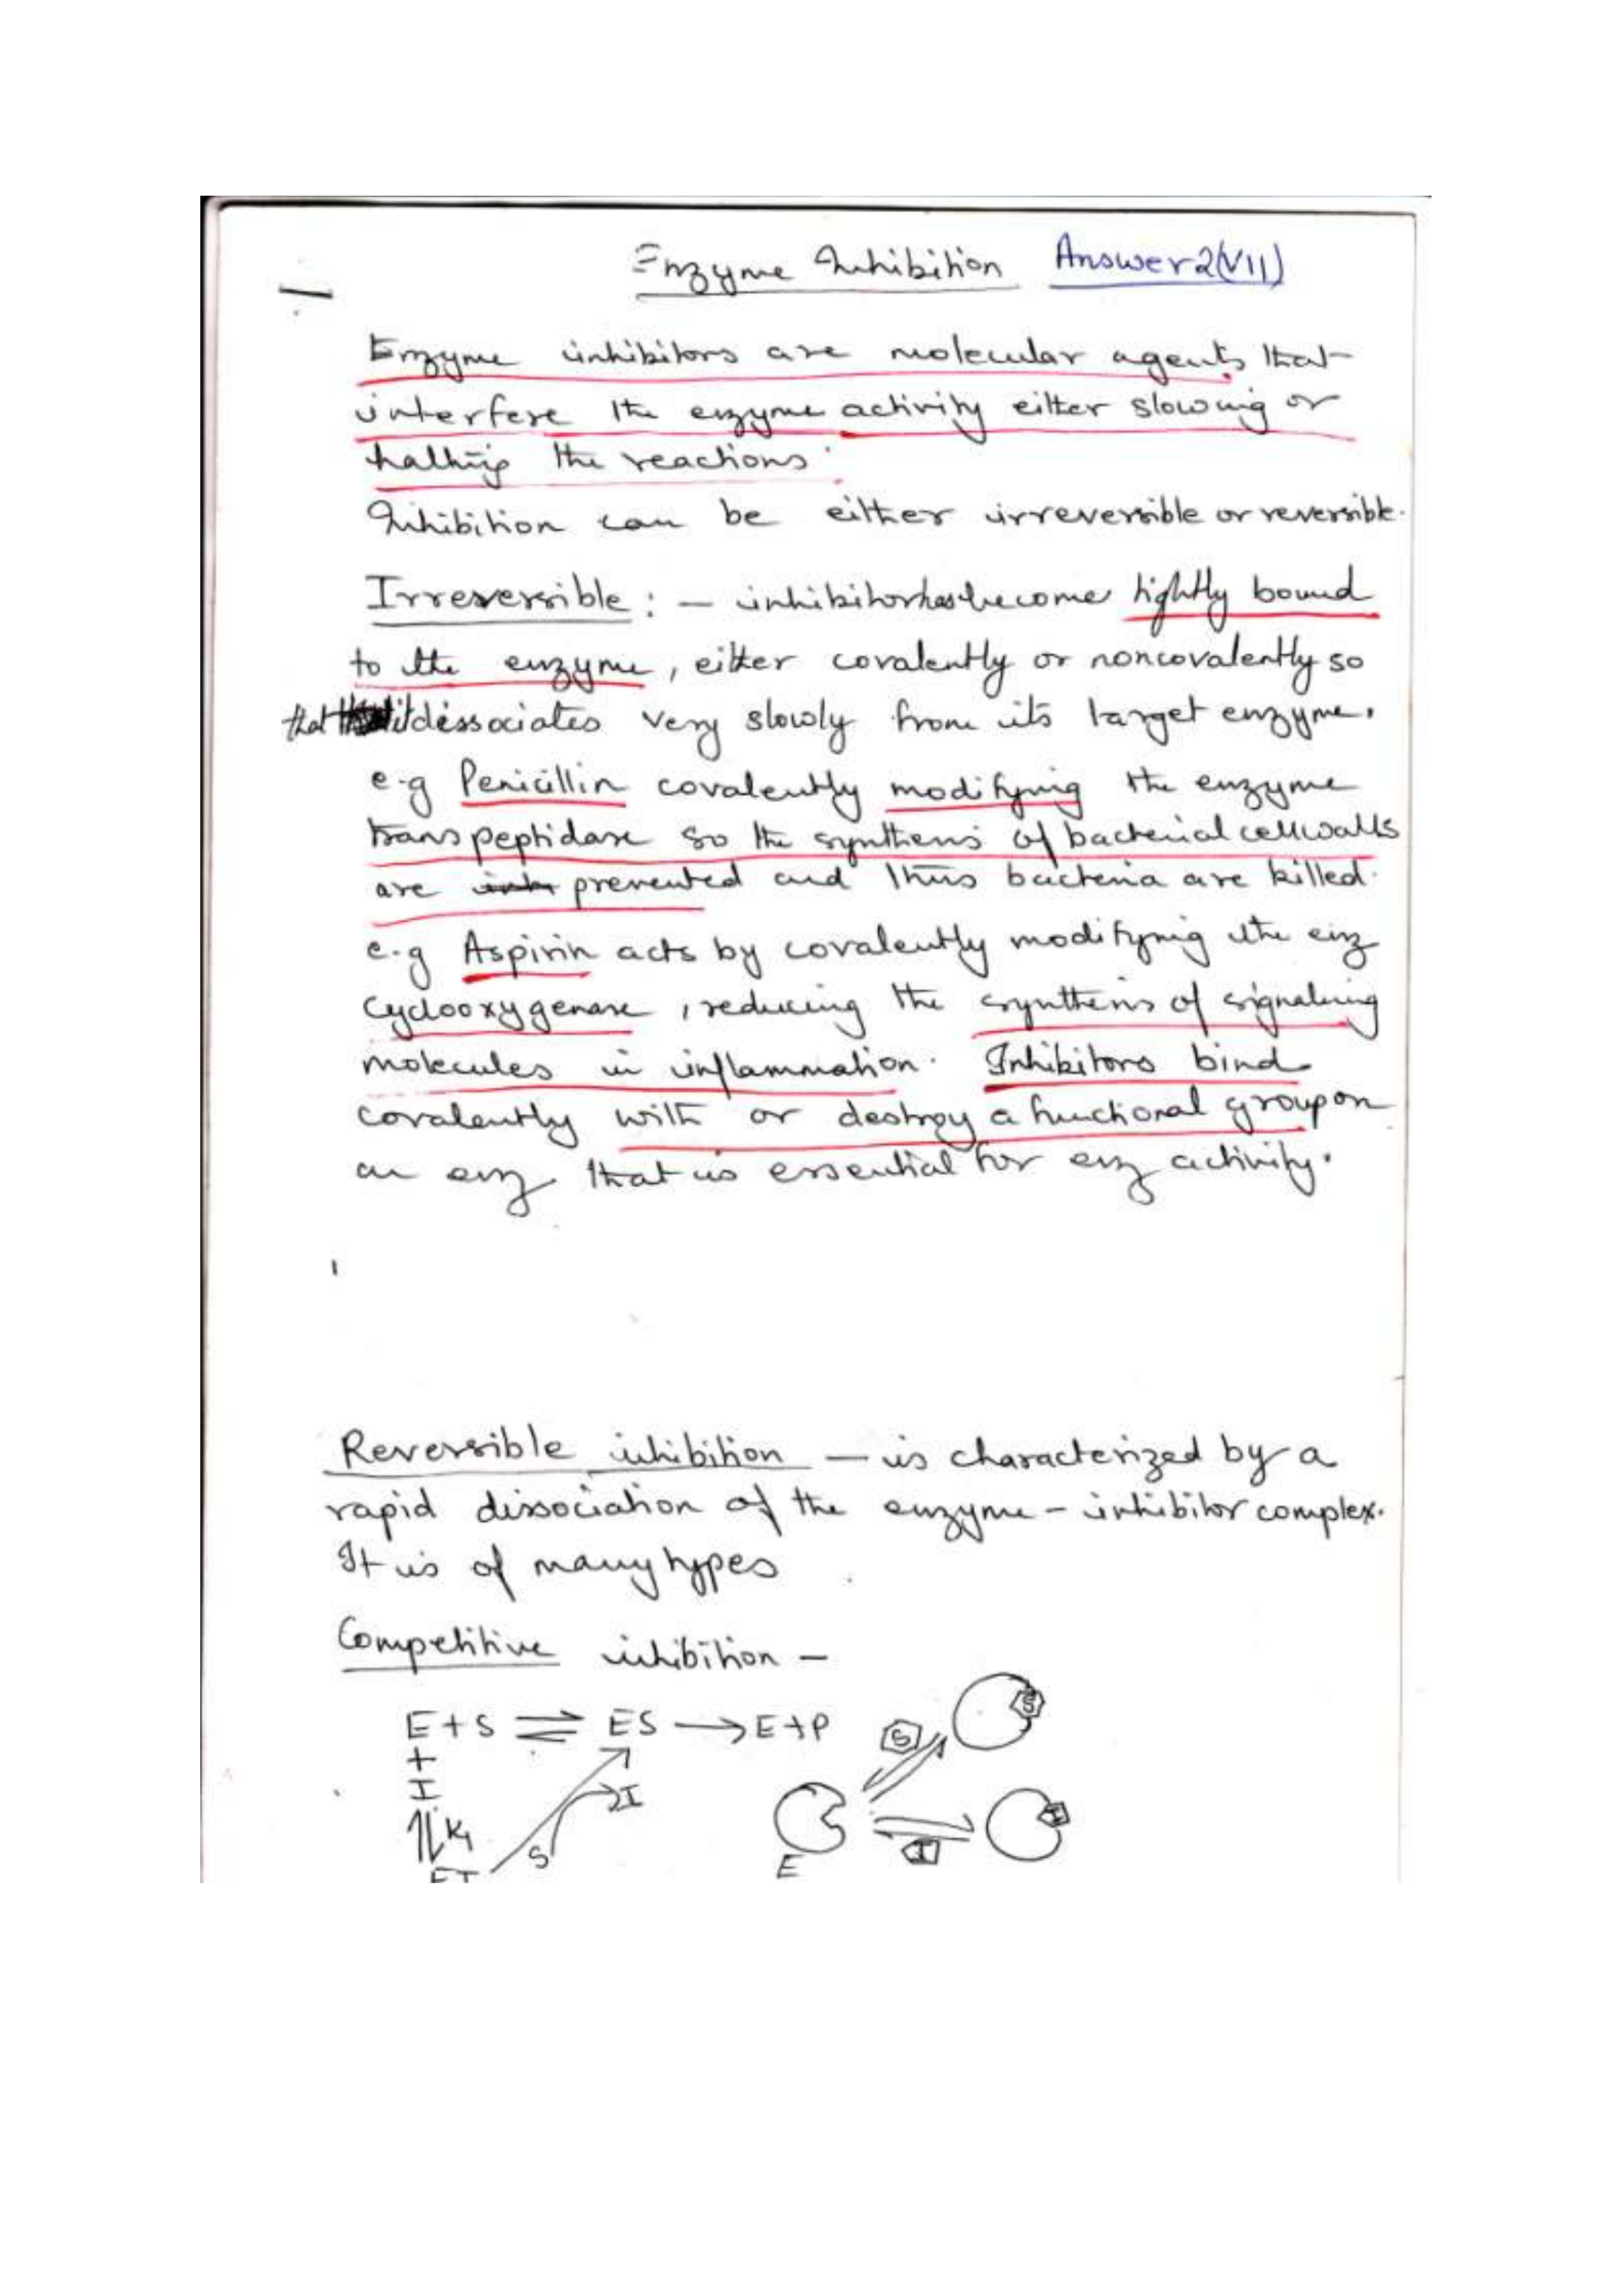 Enzyme Inhibition Answer 2(VII)
Enzyme inhibitors are molecular agents that
interfere the enzyme activity either slowing or
halting the reactions.
Inhibition can be either irreversible or reversible.
Irreversible : – inhibitor has become tightly bound
to the enzyme, either covalently or noncovalently so
that it dessociates very slowly from its target enzyme.
e.g Penicillin covalently modifying the enzyme
transpeptidase so the synthesis of bacterial cell walls
are prevented and thus bacteria are killed.
e.g Aspirin acts by covalently modifying the enz
Cyclooxygenase, reducing the synthesis of signaluing
molecules in inflammation. Inhibitors bind
covalently with or destroy a functional group on
an enz. that is essential for enz activity.
Reversible inhibition — is characterized by a
rapid dissociation of the enzyme – inhibitor complex.
It is of many types
Competitive inhibition –
E + S ⇌ ES → E + P
+
I
⇅ KI
EI
S
I
S
S
E
I
I